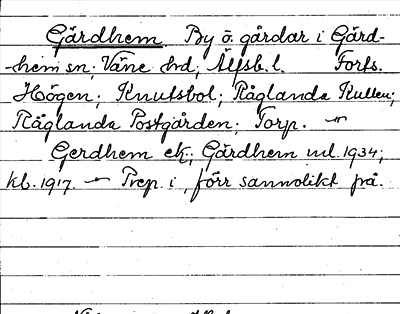 Gärdhem By o. gårdar i Gärd-
hem sn; Väne hd; Älfsb. l. Forts.
Högen; Knutsbol; Råglanda Kullen;
Råglanda Postgården; Torp. —"
Gerdhem ek; Gärdhem ml. 1934;
kb. 1917. — Prep. i, förr sannolikt på.